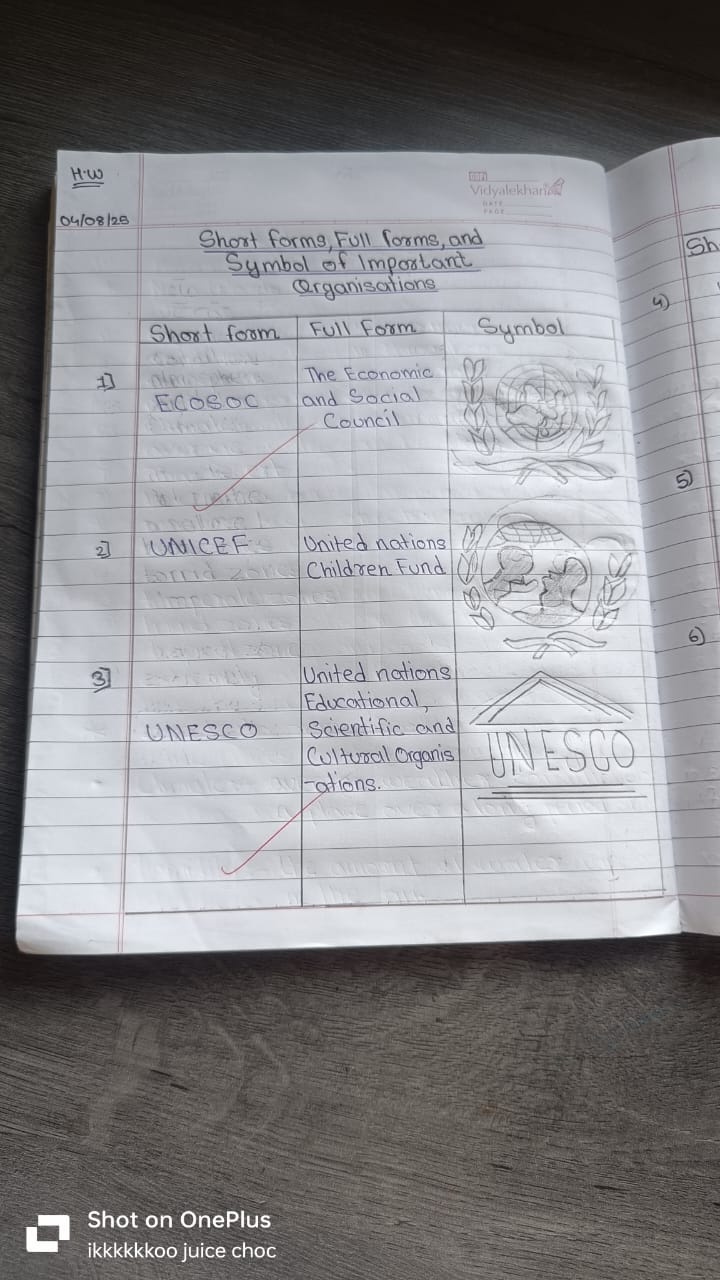 H.W
Vidyalekhan
DATE
PAGE
04/08/25
Short forms, Full forms, and
Symbol of Important
Organisations
Short form Full Form Symbol
1]
ECOSOC
The Economic
and Social
Council
2]
UNICEF
United nations
Children Fund
3]
UNESCO
United nations
Educational,
Scientific and
Cultural Organis
-ations.
UNESCO
Sh
4)
5)
6)
Shot on OnePlus
ikkkkkkoo juice choc